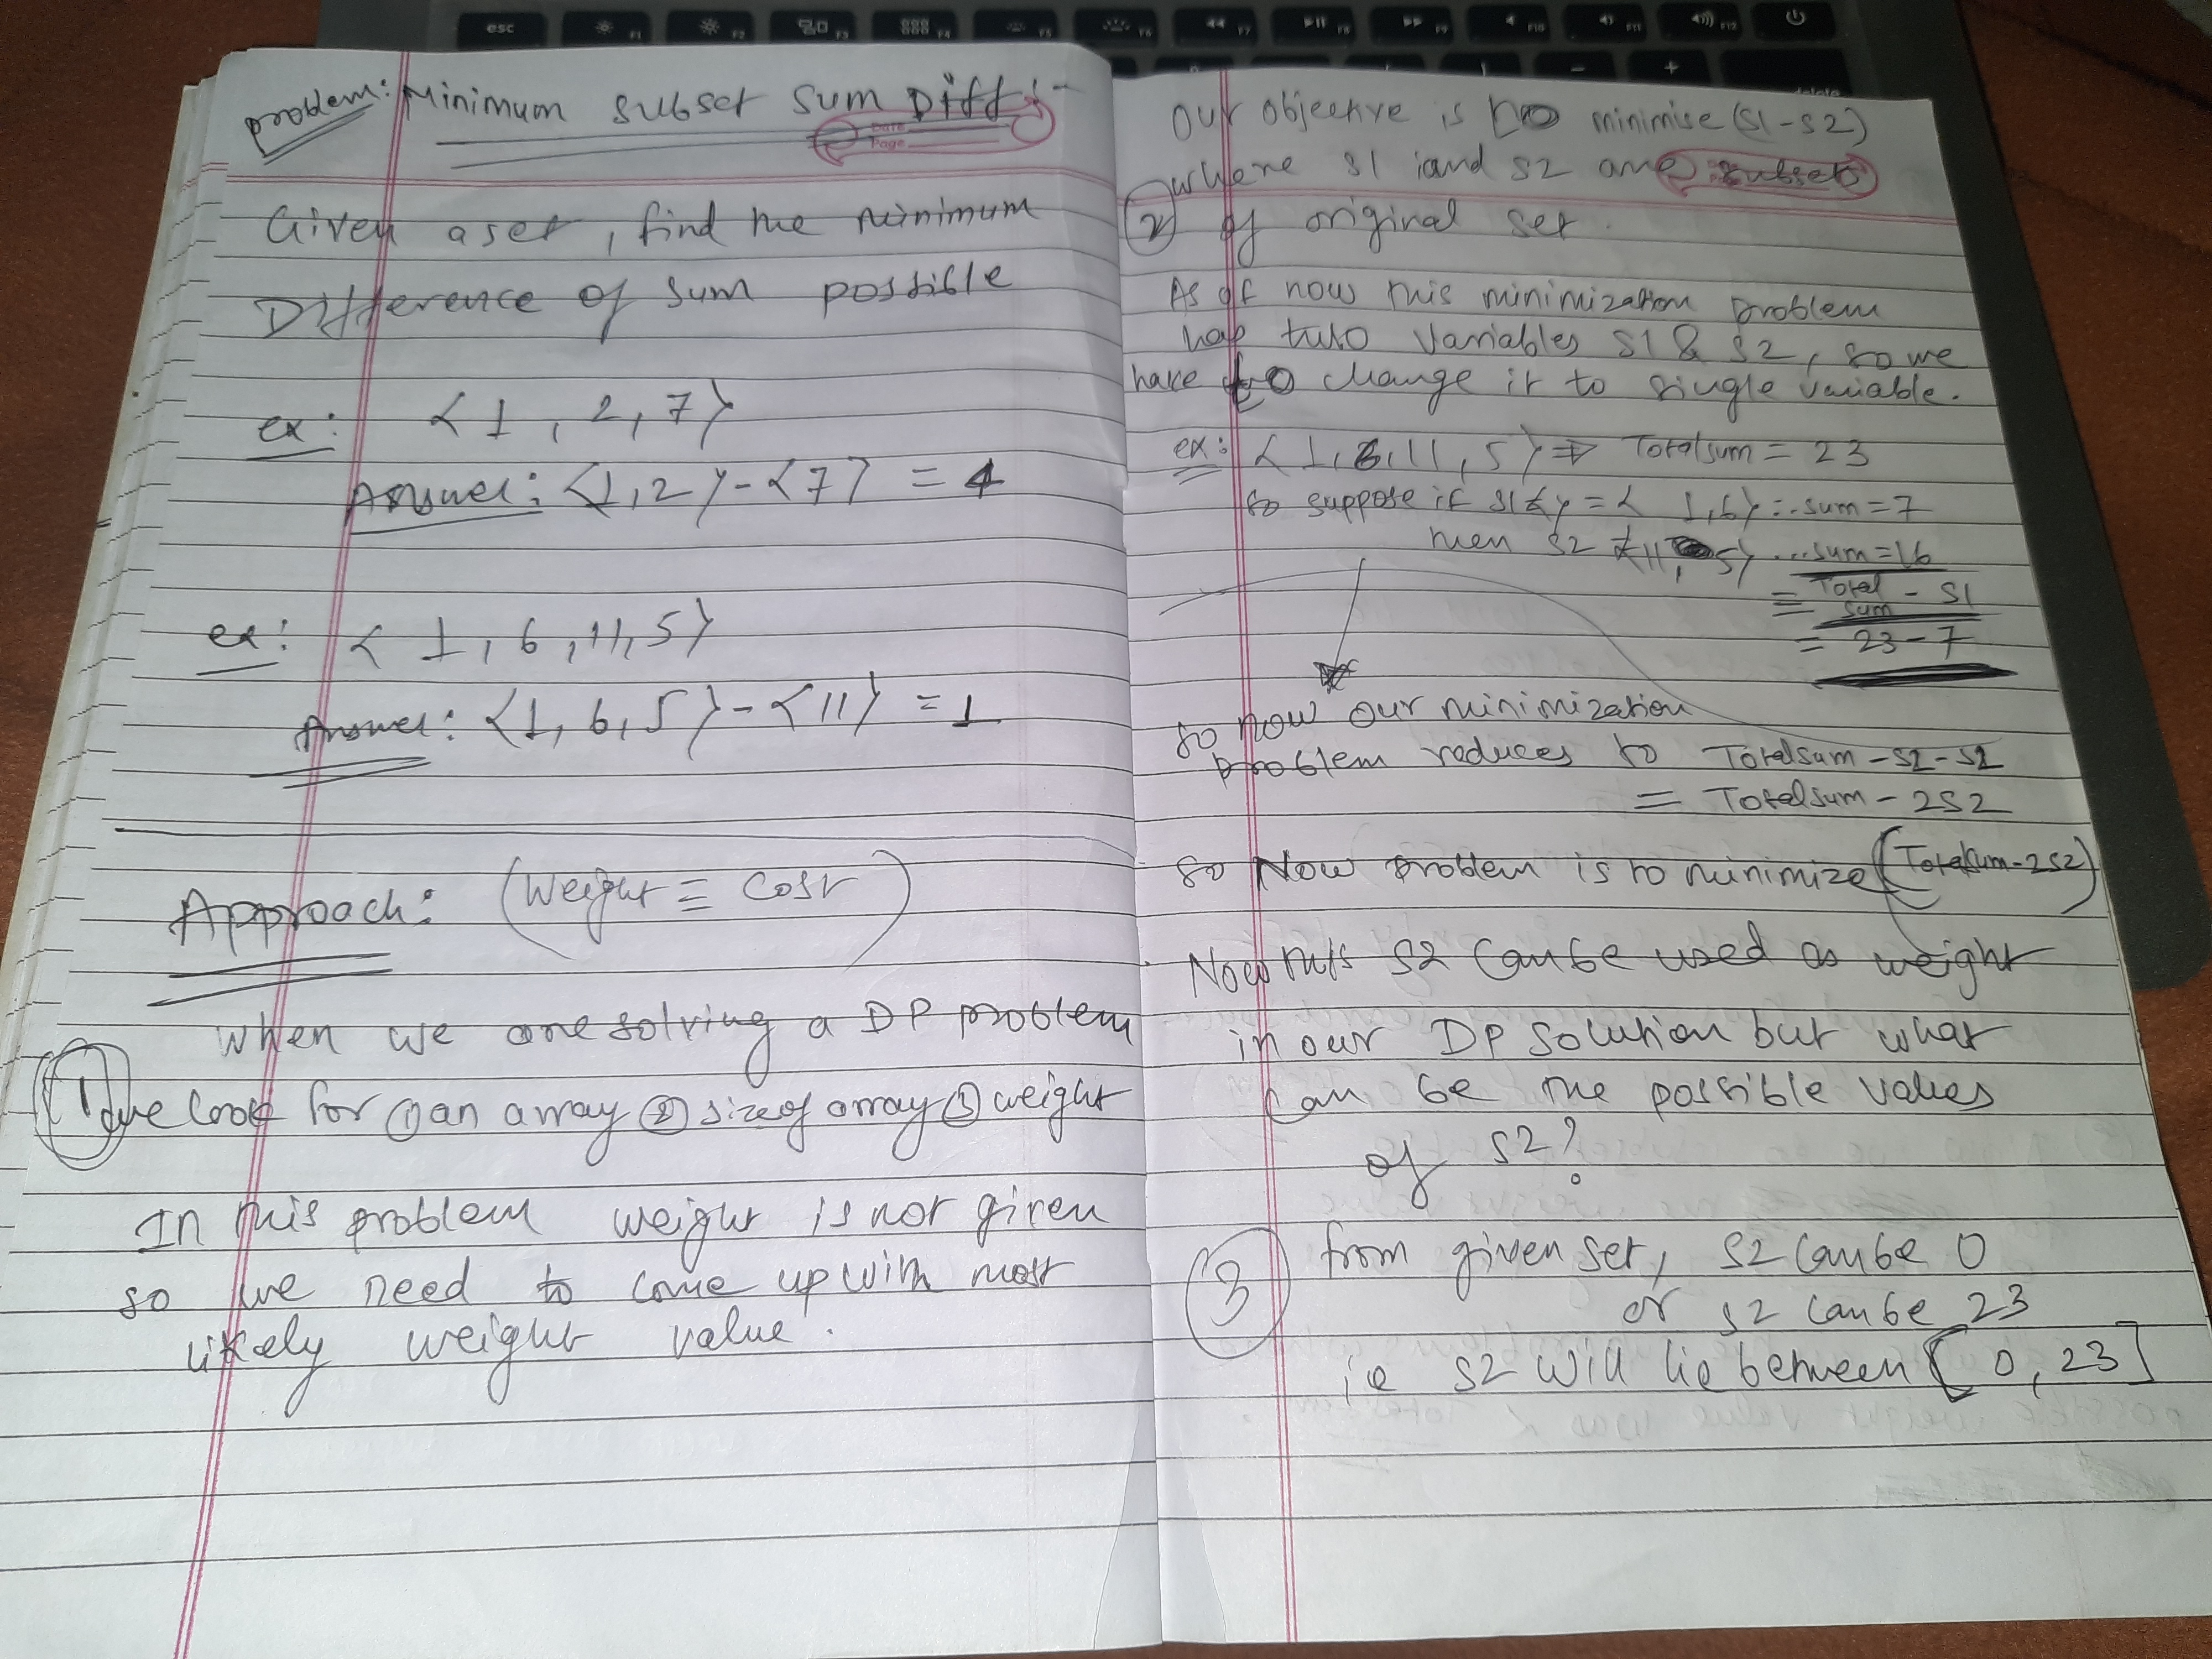 esc F1 F2 F3 F4 F5 F6 F7 F8 F9 F10 F11 F12
problem: Minimum subset sum Diff :-
Date
Page
Given a set, find the minimum
Difference of sum possible
ex: {1, 2, 7}
Answer: {1,2} - {7} = 4
ex: {1, 6, 11, 5}
Answer: {1, 6, 5} - {11} = 1
Approach: (Weight ≡ Cost)
When we are solving a DP problem
① we look for ① an array ② size of array ③ weight
In this problem weight is not given
so we need to come up with most
likely weight value.
Our objective is to minimise (S1-S2)
where S1 and S2 are subsets
② of original set.
As of now this minimization problem
has two variables S1 & S2, so we
have to change it to single variable.
ex: {1, 6, 11, 5} ⇒ Totalsum = 23
so suppose if S1 = { 1,6} :..sum = 7
then S2 {11, 5} ...sum = 16
= Total sum - S1
= 23 - 7
so now our minimization
problem reduces to Totalsum - S2 - S2
= Totalsum - 2S2
So Now problem is to minimize (Totalsum - 2S2)
Now this S2 can be used as weight
in our DP solution but what
can be the possible values
of S2?
③ from given set, S2 can be 0
or S2 can be 23
ie S2 will lie between [0, 23]